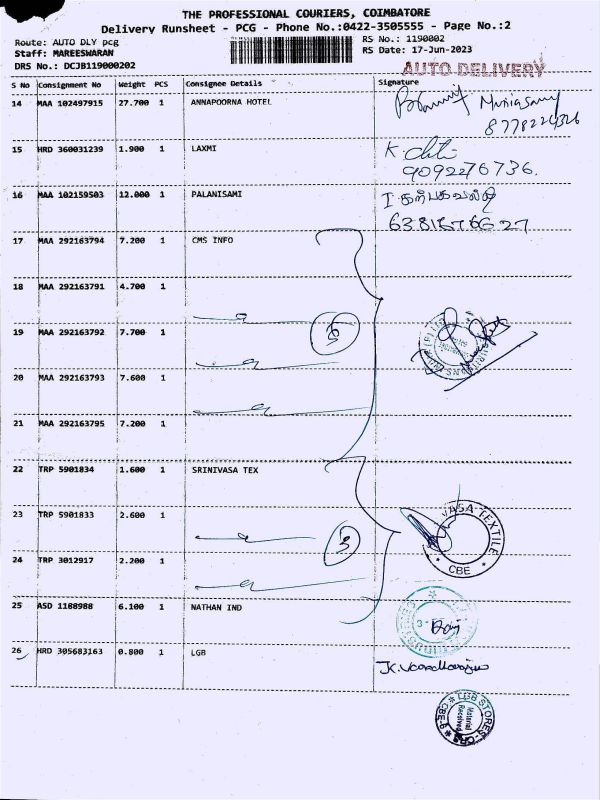 THE PROFESSIONAL COURIERS, COIMBATORE
Delivery Runsheet - PCG - Phone No.:0422-3505555 - Page No.:2
Route: AUTO DLY pcg RS No.: 1190002
Staff: MAREESWARAN RS Date: 17-Jun-2023
DRS No.: DCJB119000202 AUTO DELIVERY
S No Consignment No Weight PCS Consignee Details Signature
14 MAA 102497915 27.700 1 ANNAPOORNA HOTEL
15 HRD 360031239 1.900 1 LAXMI
9092276736.
16 MAA 102159503 12.000 1 PALANISAMI
17 MAA 292163794 7.200 1 CMS INFO
18 MAA 292163791 4.700 1
19 MAA 292163792 7.700 1
5
20 MAA 292163793 7.600 1
21 MAA 292163795 7.200 1
22 TRP 5901834 1.600 1 SRINIVASA TEX
23 TRP 5901833 2.600 1
VASA TEXTILE
CBE
3
24 TRP 3012917 2.200 1
25 ASD 1188988 6.100 1 NATHAN IND
26 HRD 305683163 0.800 1 LGB
LGB STORES
Material
Received
CBE-6